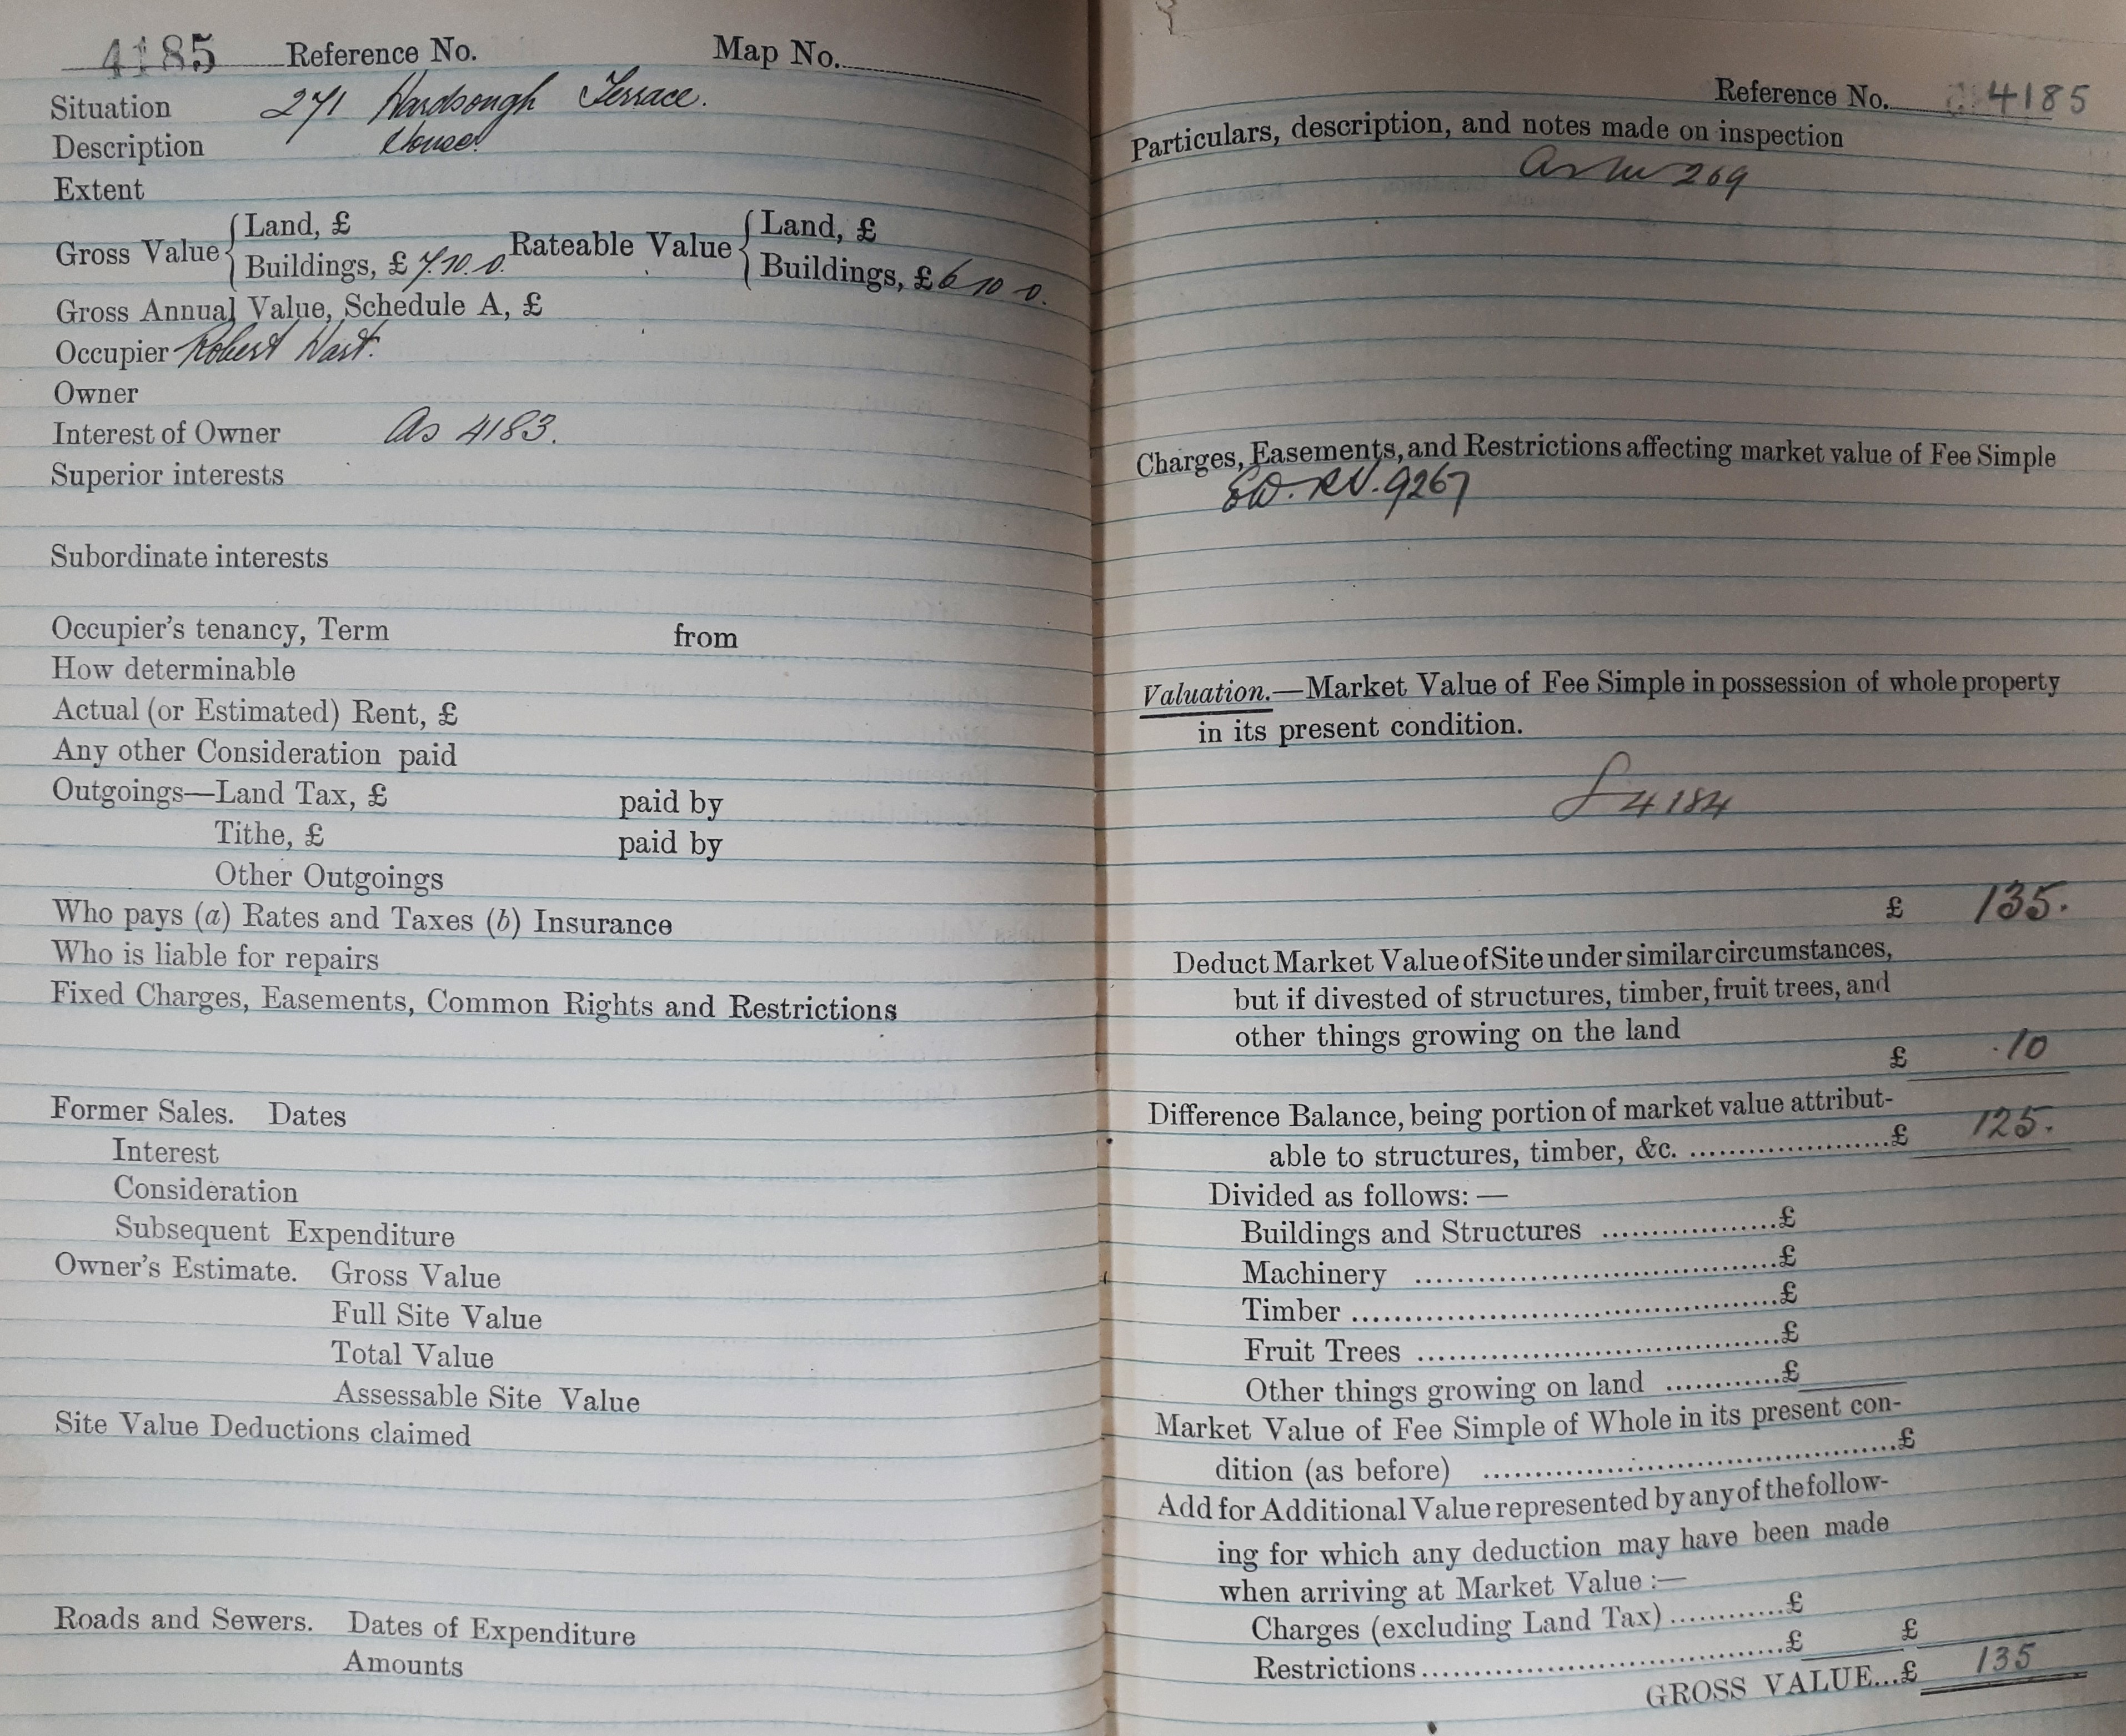 4185 Reference No. Map No.
Situation 271 Hardsough Terrace.
Description House
Extent
Gross Value { Land, £
Buildings, £ 7.10.0. Rateable Value { Land, £
Buildings, £ 6 10 0.
Gross Annual Value, Schedule A, £
Occupier Robert Hart.
Owner
Interest of Owner As 4183.
Superior interests
Subordinate interests
Occupier's tenancy, Term from
How determinable
Actual (or Estimated) Rent, £
Any other Consideration paid
Outgoings—Land Tax, £ paid by
Tithe, £ paid by
Other Outgoings
Who pays (a) Rates and Taxes (b) Insurance
Who is liable for repairs
Fixed Charges, Easements, Common Rights and Restrictions
Former Sales. Dates
Interest
Consideration
Subsequent Expenditure
Owner's Estimate. Gross Value
Full Site Value
Total Value
Assessable Site Value
Site Value Deductions claimed
Roads and Sewers. Dates of Expenditure
Amounts
Reference No. 4185
Particulars, description, and notes made on inspection
269
Charges, Easements, and Restrictions affecting market value of Fee Simple
RV. 9267
Valuation.—Market Value of Fee Simple in possession of whole property
in its present condition.
4184
£ 135.
Deduct Market Value of Site under similar circumstances,
but if divested of structures, timber, fruit trees, and
other things growing on the land
£ 10
Difference Balance, being portion of market value attribut-
able to structures, timber, &c. ....................£ 125.
Divided as follows:—
Buildings and Structures ..................£
Machinery ......................................£
Timber .............................................£
Fruit Trees ......................................£
Other things growing on land ............£
Market Value of Fee Simple of Whole in its present con-
dition (as before) ............................................£
Add for Additional Value represented by any of the follow-
ing for which any deduction may have been made
when arriving at Market Value :—
Charges (excluding Land Tax)............£
Restrictions......................................£ £
GROSS VALUE...£ 135